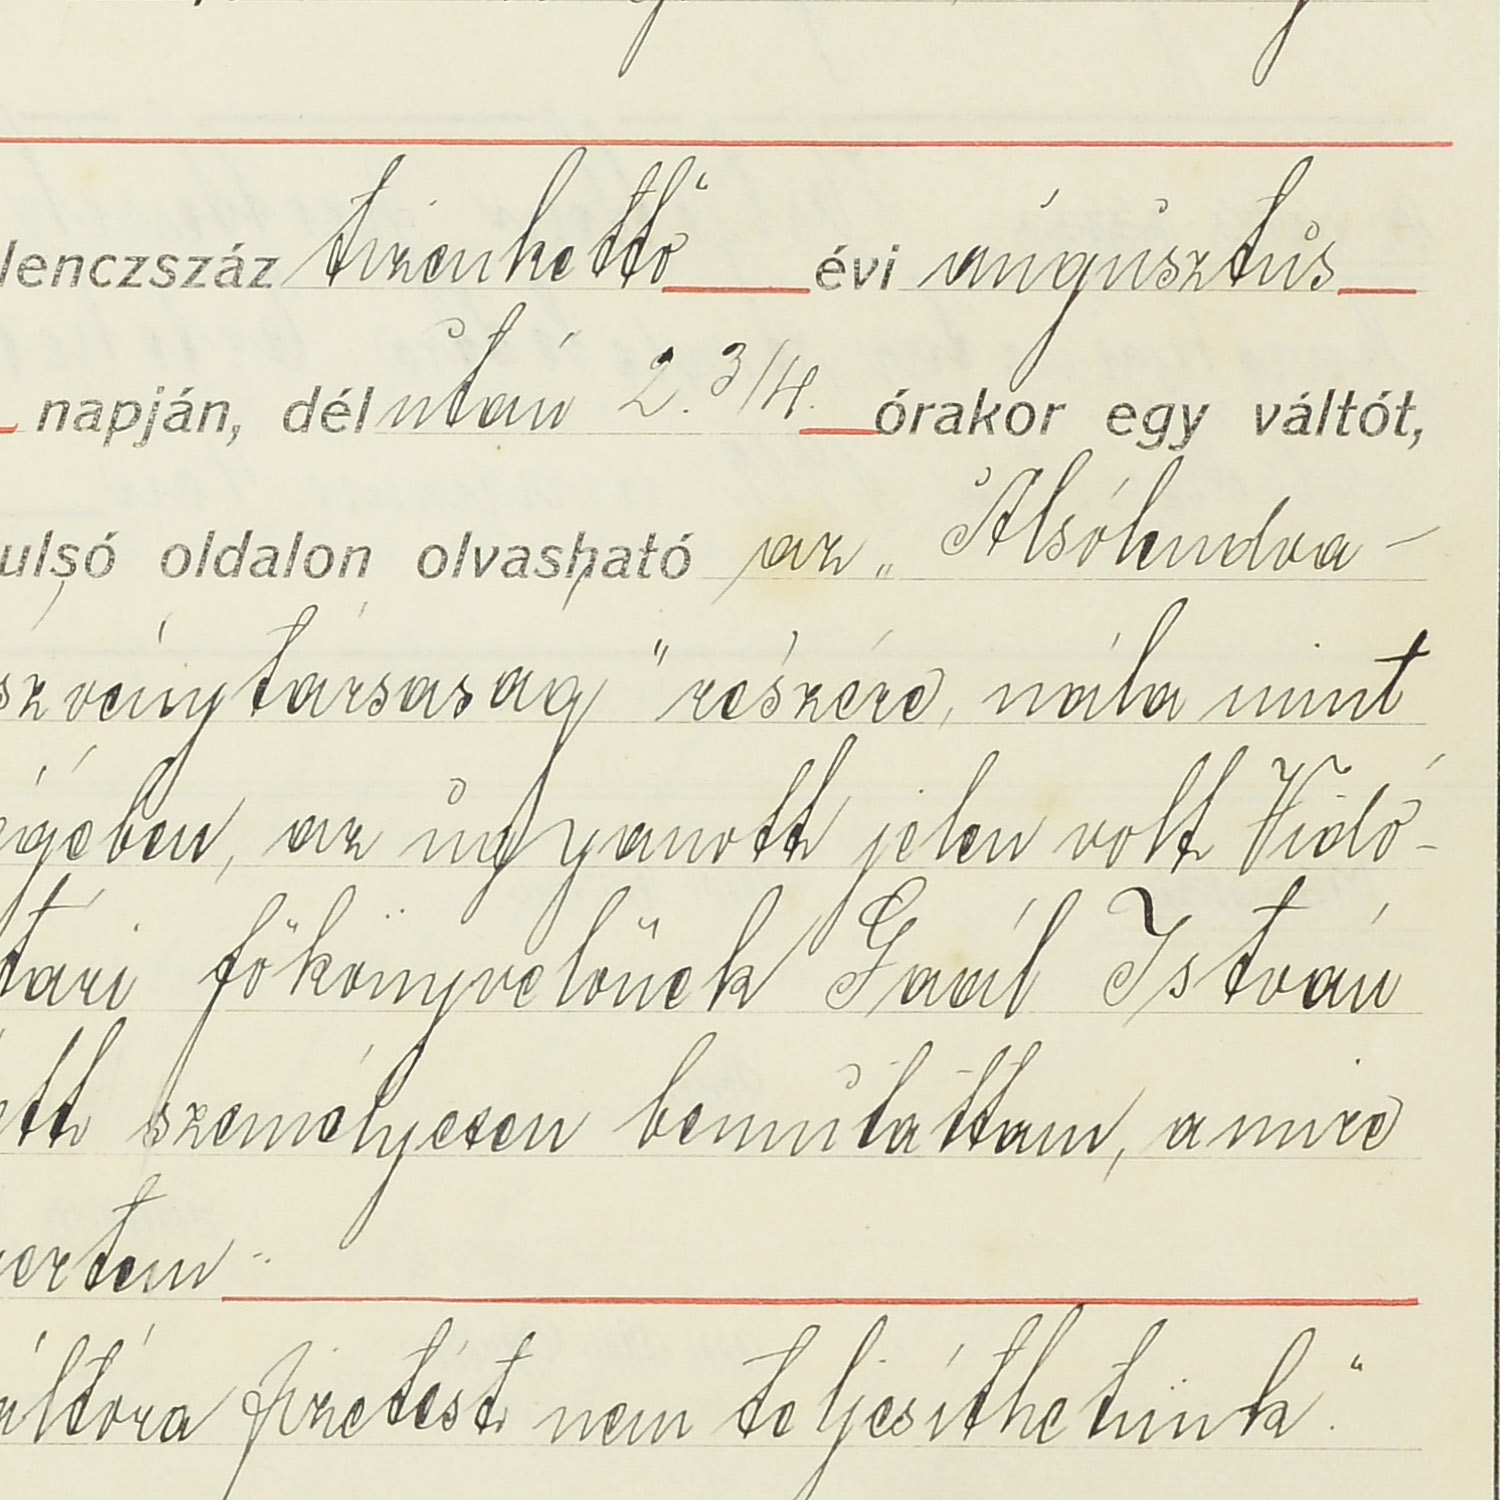 lenczszáz tizenkettő évi augusztus
napján, délután 2. 3/4. órakor egy váltót,
ulsó oldalon olvasható az „Alsólendva-
szvénytársaság" részére, nála mint
égében, az ugyanott jelen volt Vidó-
tári főkönyvelőnek Gaál István
ett személyesen bemutattam, amire
ertem:
áltóra fizetést nem teljesíthetünk."